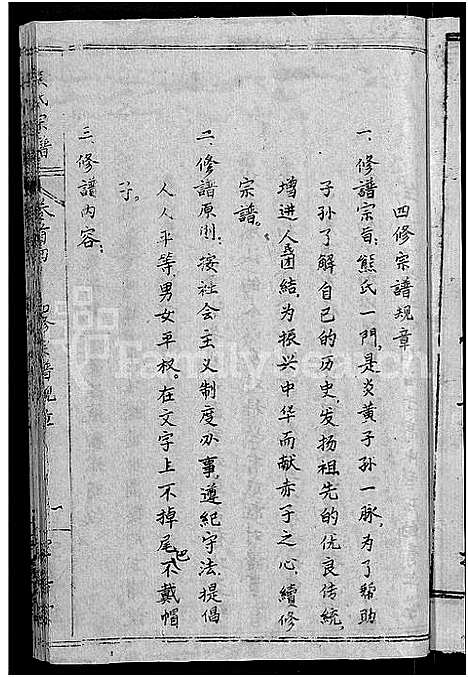 四修宗譜规章
一、修譜宗旨：熊氏一門，是炎黄子孙一脉，为了帮助
子孙了解自已的历史，发扬祖先的优良传统，
增进人民团结，为振兴中华而献赤子之心，續修
宗譜。
二、修譜原则：按社会主义制度办事，遵纪守法，提倡
人人平等，男女平权。在文字上不掉尾巴不戴帽
子。
三、修譜内容：
氏宗譜 卷首四 宗譜规章 一
FamilySearch